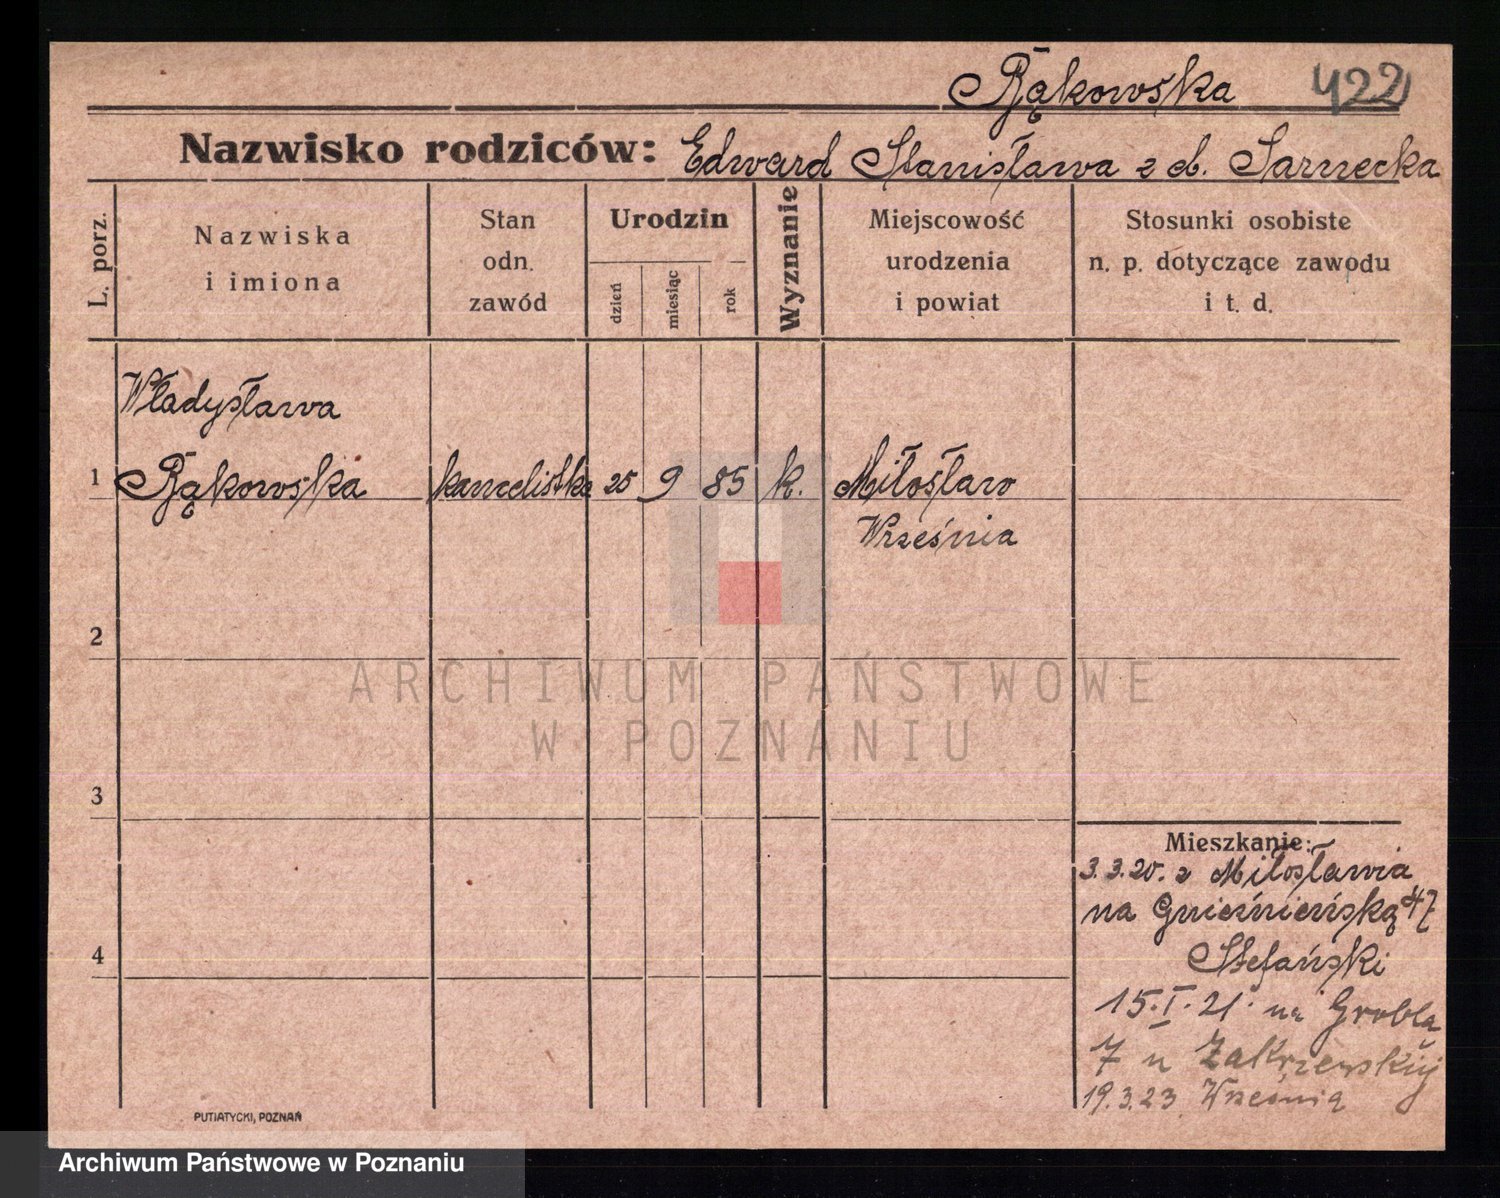 Rąkowska 422
Nazwisko rodziców: Edward Stanisława z d. Sarnecka
L. porz.
Nazwiska
i imiona
Stan
odn.
zawód
Urodzin
dzień
miesiąc
rok
Wyznanie
Miejscowość
urodzenia
i powiat
Stosunki osobiste
n. p. dotyczące zawodu
i t. d.
Władysława
1 Rąkowska kancelistka 25 9 85 k. Miłosław
Września
2
3
4
Mieszkanie:
3.3.20. z Miłosławia
na Gnieźnieńską 47
Stefański
15.I.21 na Grobla
7 u Zakrzewskiej
19.3.23 Września
PUTIATYCKI, POZNAŃ
ARCHIWUM PAŃSTWOWE
W POZNANIU
Archiwum Państwowe w Poznaniu